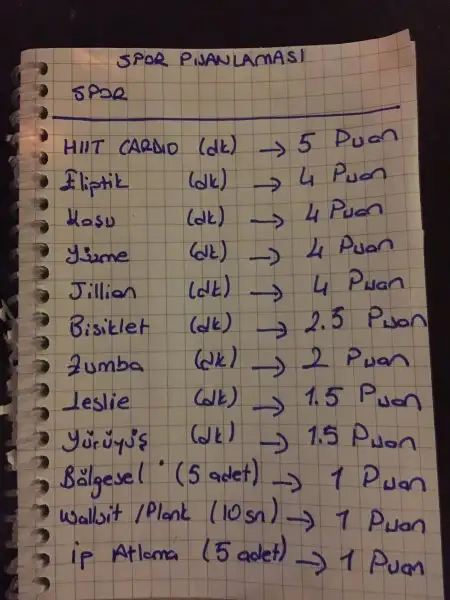 SPOR PUANLAMASI
SPOR
HIIT CARDIO (dk) → 5 Puan
Eliptik (dk) → 4 Puan
Koşu (dk) → 4 Puan
Yüzme (dk) → 4 Puan
Jillian (dk) → 4 Puan
Bisiklet (dk) → 2.5 Puan
Zumba (dk) → 2 Puan
Leslie (dk) → 1.5 Puan
Yürüyüş (dk) → 1.5 Puan
Bölgesel (5 adet) → 1 Puan
Wallsit / Plank (10 sn) → 1 Puan
ip Atlama (5 adet) → 1 Puan